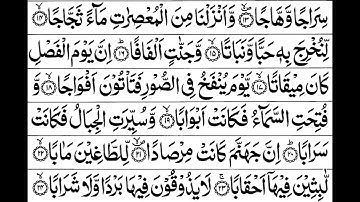 سِرَاجًا وَّهَّاجًا ۝١٣ وَّاَنْزَلْنَا مِنَ الْمُعْصِرٰتِ مَآءً ثَجَّاجًا ۝١٤
لِّنُخْرِجَ بِهٖ حَبًّا وَّنَبَاتًا ۝١٥ وَّجَنّٰتٍ اَلْفَافًا ۝١٦ اِنَّ يَوْمَ الْفَصْلِ
كَانَ مِيْقَاتًا ۝١٧ يَّوْمَ يُنْفَخُ فِى الصُّوْرِ فَتَاْتُوْنَ اَفْوَاجًا ۝١٨ وَّ
فُتِحَتِ السَّمَآءُ فَكَانَتْ اَبْوَابًا ۝١٩ وَّسُيِّرَتِ الْجِبَالُ فَكَانَتْ
سَرَابًا ۝٢٠ اِنَّ جَهَنَّمَ كَانَتْ مِرْصَادًا ۝٢١ لِّلطَّاغِيْنَ مَاٰبًا ۝٢٢
لّٰبِثِيْنَ فِيْهَآ اَحْقَابًا ۝٢٣ لَا يَذُوْقُوْنَ فِيْهَا بَرْدًا وَّلَا شَرَابًا ۝٢٤